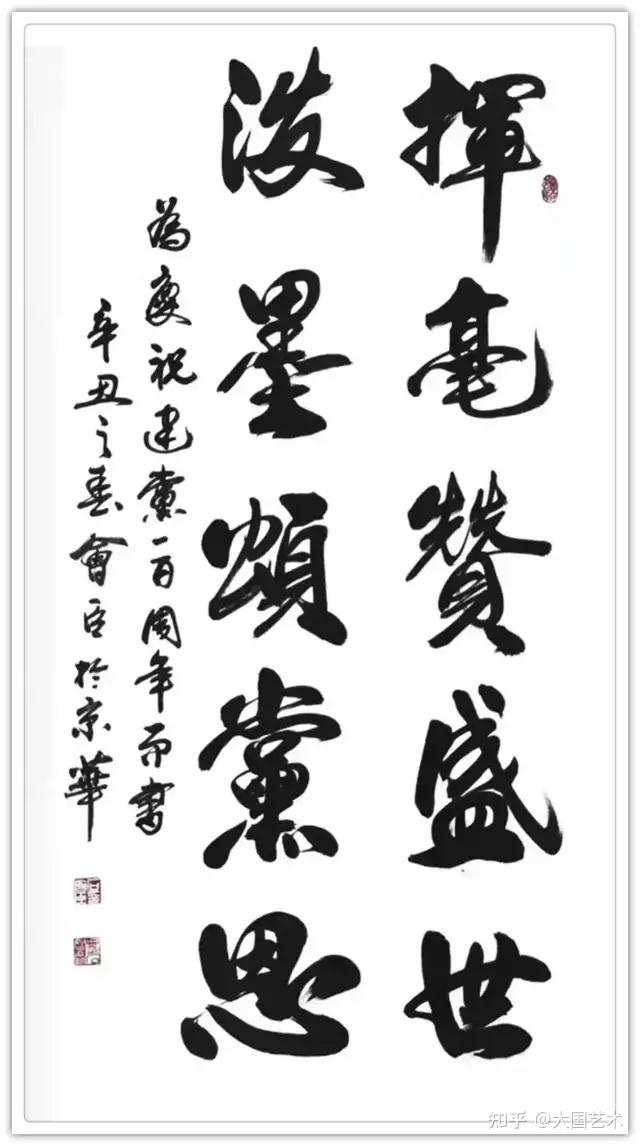 揮毫贊盛世
潑墨頌黨恩
為慶祝建黨一百周年而書
辛丑之春會臣於京華
知乎 @大国艺术